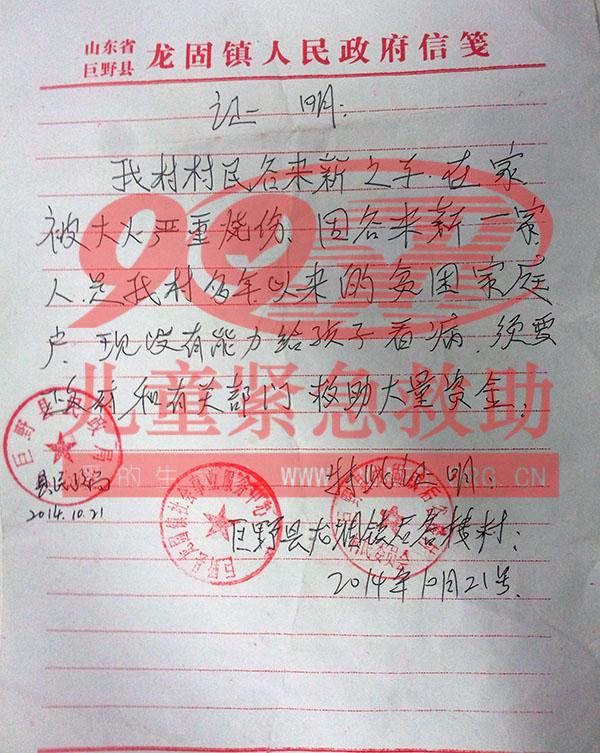 山东省
巨野县 龙固镇人民政府信笺
证明
我村村民 来新之子.在家
被大火严重烧伤、因 来新一家
人是我村多年以来的贫困家庭
户.现没有能力给孩子看病.须要
政府和有关部门救助大量资金.
儿童紧急救助
特此证明.
巨野县 政局
县民政局
2014.10.21
巨野县龙固镇 楼村:
2014年10月21号.
巨野县龙固镇社会事业服务中心
村民委员会
ORG.CN